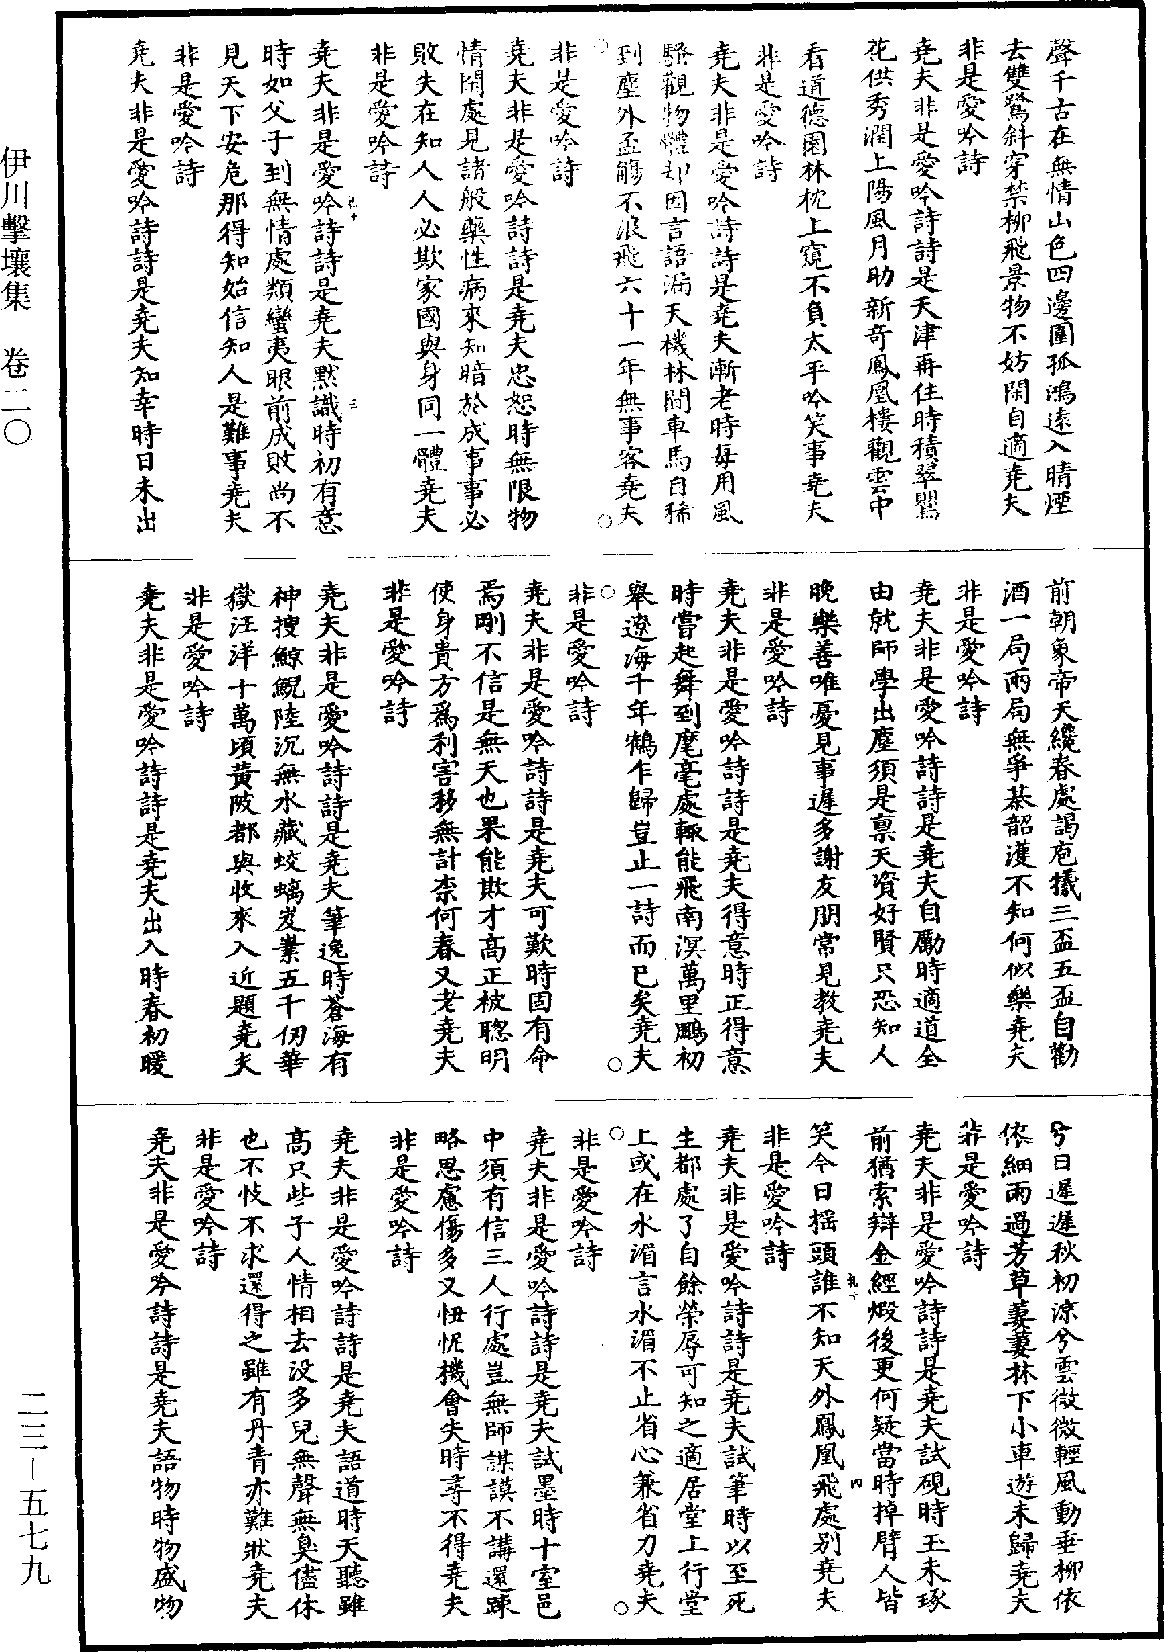 伊川擊壤集　卷二〇
二三－五七九
聲千古在無情山色四邊圍孤鴻遠入晴煙
去雙鷺斜穿禁柳飛景物不妨閑自適堯夫
非是愛吟詩
堯夫非是愛吟詩詩是天津再住時積翠罌
花供秀潤上陽風月助新奇鳳凰樓觀雲中
看道德園林枕上窺不負太平吟笑事堯夫
非是愛吟詩
堯夫非是愛吟詩詩是堯夫漸老時每用風
騷觀物體却因言語漏天機林間車馬自稀
到塵外盃觴不浪飛六十一年無事客堯夫
非是愛吟詩
堯夫非是愛吟詩詩是堯夫忠恕時無限物
情閑處見諸般藥性病來知暗於成事事必
敗失在知人人必欺家國與身同一體堯夫
非是愛吟詩
堯夫非是愛吟詩詩是堯夫默識時初有意
時如父子到無情處類蠻夷眼前成敗尚不
見天下安危那得知始信知人是難事堯夫
非是愛吟詩
堯夫非是愛吟詩詩是堯夫知幸時日未出
前朝象帝天纔春處謁庖犧三盃五盃自勸
酒一局兩局無爭棊韶濩不知何似樂堯夫
非是愛吟詩
堯夫非是愛吟詩詩是堯夫自勵時適道全
由就師學出塵須是稟天資好賢只恐知人
晚樂善唯憂見事遲多謝友朋常見教堯夫
非是愛吟詩
堯夫非是愛吟詩詩是堯夫得意時正得意
時嘗起舞到麾毫處輒能飛南溟萬里鵬初
舉遼海千年鶴乍歸豈止一詩而已矣堯夫
非是愛吟詩
堯夫非是愛吟詩詩是堯夫可歎時固有命
焉剛不信是無天也果能欺才高正被聰明
使身貴方為利害移無計柰何春又老堯夫
非是愛吟詩
堯夫非是愛吟詩詩是堯夫筆逸時蒼海有
神搜鯨鯢陸沉無水藏蛟螭岌業五千仞華
嶽汪洋十萬頃黃陂都與收來入近題堯夫
非是愛吟詩
堯夫非是愛吟詩詩是堯夫出入時春初暖
兮日遲遲秋初涼兮雲微微輕風動垂柳依
依細雨過芳草萋萋林下小車遊未歸堯夫
非是愛吟詩
堯夫非是愛吟詩詩是堯夫試硯時玉未琢
前猶索辯金經煅後更何疑當時掉臂人皆
笑今日搖頭誰不知天外鳳凰飛處別堯夫
非是愛吟詩
堯夫非是愛吟詩詩是堯夫試筆時以至死
生都處了自餘榮辱可知之適居堂上行堂
上或在水湄言水湄不止省心兼省力堯夫
非是愛吟詩
堯夫非是愛吟詩詩是堯夫試墨時十室邑
中須有信三人行處豈無師謀謨不講還踈
略思慮傷多又忸怩機會失時尋不得堯夫
非是愛吟詩
堯夫非是愛吟詩詩是堯夫語道時天聽雖
高只些子人情相去沒多兒無聲無臭儘休
也不忮不求還得之雖有丹青亦難狀堯夫
非是愛吟詩
堯夫非是愛吟詩詩是堯夫語物時物盛物